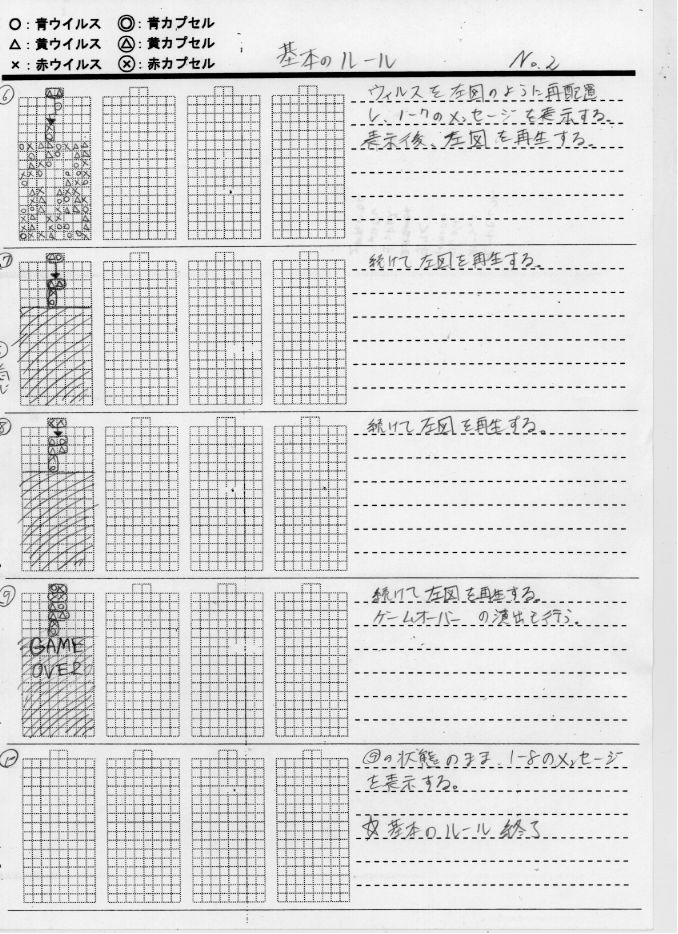 ○：青ウイルス ◎：青カプセル
△：黄ウイルス Ⓐ：黄カプセル
×：赤ウイルス ⊗：赤カプセル
基本のルール No.2
⑥
ウィルスを左図のように再配置
し、1-7のメッセージを表示する。
表示後、左図を再生する。
⑦
続けて左図を再生する。
⑧
続けて左図を再生する。
⑨
続けて左図を再生する。
ゲームオーバーの演出を行う。
GAME
OVER
⑩
⑨の状態のまま、1-8のメッセージ
を表示する。
☆基本のルール 終了